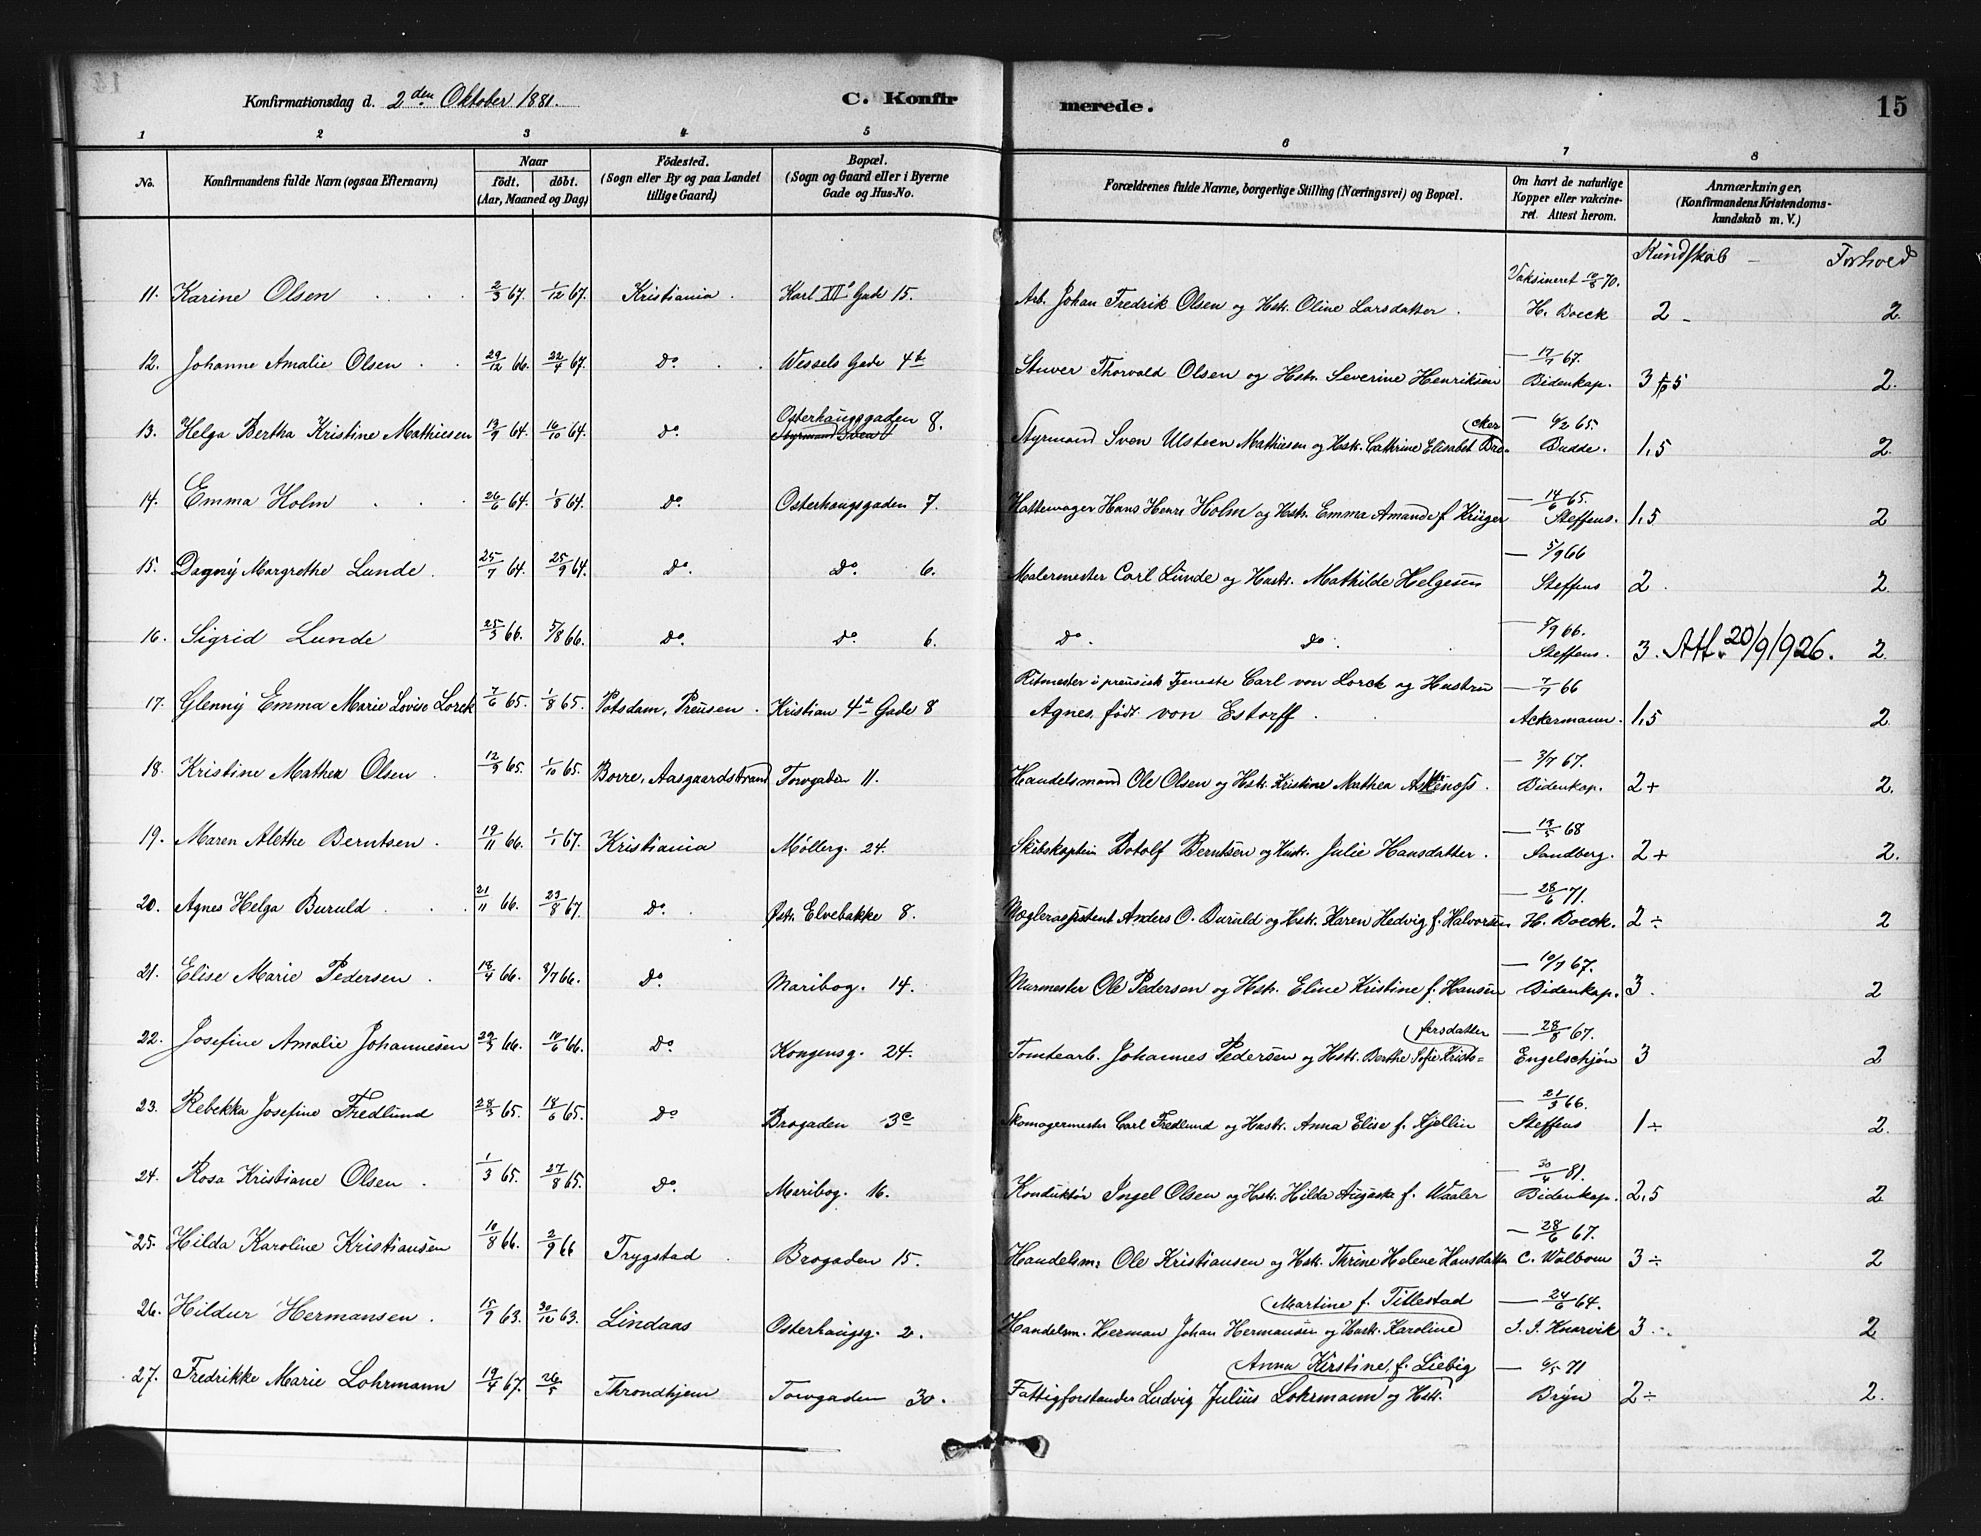 Konfirmationsdag d. 2den Oktober 1881. C. Konfirmerede. 15
1 2 3 4 5 6 7 8
No. Konfirmandens fulde Navn (ogsaa Efternavn) Naar födt. döbt. (Aar, Maaned og Dag) Födested. (Sogn eller By og paa Landet tillige Gaard) Bopæl. (Sogn og Gaard eller i Byerne Gade og Hus-No. Forældrenes fulde Navne, borgerlige Stilling (Næringsvei) og Bopæl. Om havt de naturlige Kopper eller vakcineret. Attest herom. Anmærkninger. (Konfirmandens Kristendomskundskab m. V.)
Kundskab - Forhold
11. Karine Olsen 2/3 67. 1/12 67. Kristiania. Karl XIIs Gade 15. Arb. Johan Fredrik Olsen og Hstr. Oline Larsdatter. Vaksineret 10/6 70. H. Boeck 2 - 2.
12. Johanne Amalie Olsen 29/12 66. 22/4 67. Do. Wessels Gade 4b Stuver Thorvald Olsen og Hstr. Severine Henriksen — 17/7 67. Bidenkap. 3 5 2.
13. Helga Bertha Kristine Mathiesen 13/9 64. 16/10 64. Do. Osterhaugsgaden 8. Styrmand Sven Styrmand Sven Ulsteen Mathiesen og Hstr. Cathrine Elisabet Broecker — 6/2 65. Budde. 1,5 2.
14. Emma Holm 26/6 64. 1/8 64. Do. Osterhaugsgaden 7. Hattemager Hans Henr. Holm og Hstr. Emma Amande f. Krüger — 14/6 65. Steffens. 1,5 2
15. Dagny Margrethe Lunde. 25/7 64. 25/9 64. Do. Do. 6. Malermester Carl Lunde og Hustr. Mathilde Helgesen — 5/9 66 Steffens 2. 2.
16. Sigrid Lunde 25/3 66. 5/8 66. Do. Do. 6. Do. Do. — 5/9 66. Steffens. 3. Att. 20/9 1926. 2.
17. Glenny Emma Marie Lovise Lorck 7/6 65. 1/8 65. Potsdam, Preusen. Kristian 4de Gade 8 Ritmester i preusisk Tjeneste Carl von Lorck og Hustru Agnes født von Estorff. — 7/7 66 Ackermann. 1,5 2.
18. Kristine Mathea Olsen 12/9 65. 1/10 65. Borre, Aasgaardstrand Torvgaden 11. Handelsmand Ole Olsen og Hstr. Kristine Mathea — 3/7 67. Bidenkap. 2+ 2.
19. Maren Alethe Berntsen. 19/11 66. 1/1 67. Kristiania Møllerg. 24. Skibskaptein Botolf Berntsen og Hust. Julie Hansdatter. — 13/5 68 Sandberg. 2+ 2.
20. Agnes Helga Buruld 21/11 66. 23/8 67. Do. Østr. Elvebakke 8. Mæglerassistent Anders O. Buruld og Hstr. Karen Hedvig f. Halvorsen — 28/6 71. H. Boeck. 2 ÷ 2
21. Elise Marie Pedersen 18/4 66. 8/7 66. Do. Maribog. 14. Murmester Ole Pedersen og Hstr. Eline Kristine f. Hansen — 10/7 67. Bidenkap. 3. 2
22. Josefine Amalie Johannesen 29/3 66. 10/6 66. Do. Kongensg. 24. Tomtearb. Johannes Pedersen og Hstr. Berthe Sofie Kristofersdatter — 28/8 67. Engelschjøn 3 2
23. Rebekka Josefine Fredlund 28/3 65. 18/6 65. Do Brogaden 3c Skomagermester Carl Fredlund og Hustr. Anna Elise f. Kjellin — 21/3 66. Steffens 1 ÷ 2.
24. Rosa Kristiane Olsen. 1/3 65. 27/8 65. Do. Maribog. 16. Konduktør Ingel Olsen og Hstr. Hilda Augusta f. Waaler — 30/4 81. Bidenkap. 2,5 2
25. Hilda Karoline Kristiansen 10/8 66. 2/9 66 Trygstad Brogaden 15. Handelsm. Ole Kristiansen og Hstr. Thrine Helene Hansdatter — 28/6 67. C. Walbom 3 ÷ 2
26. Hildur Hermansen. 15/9 63. 30/12 63. Lindaas Osterhaugsg. 2. Handelsm. Herman Johan Hermansen og Hustr. Karoline Martine f. Tillestad — 24/6 64. J. J. Knarvik 3 ÷ 2
27. Fredrikke Marie Lohrmann 19/4 67. 26/5 Throndhjem Torvgaden 30. Fattigforstander Ludvig Julius Lohrmann og Hstr. Anna Kirstine, f. Liebig — 6/5 71 Bryn 2 ÷ 2.